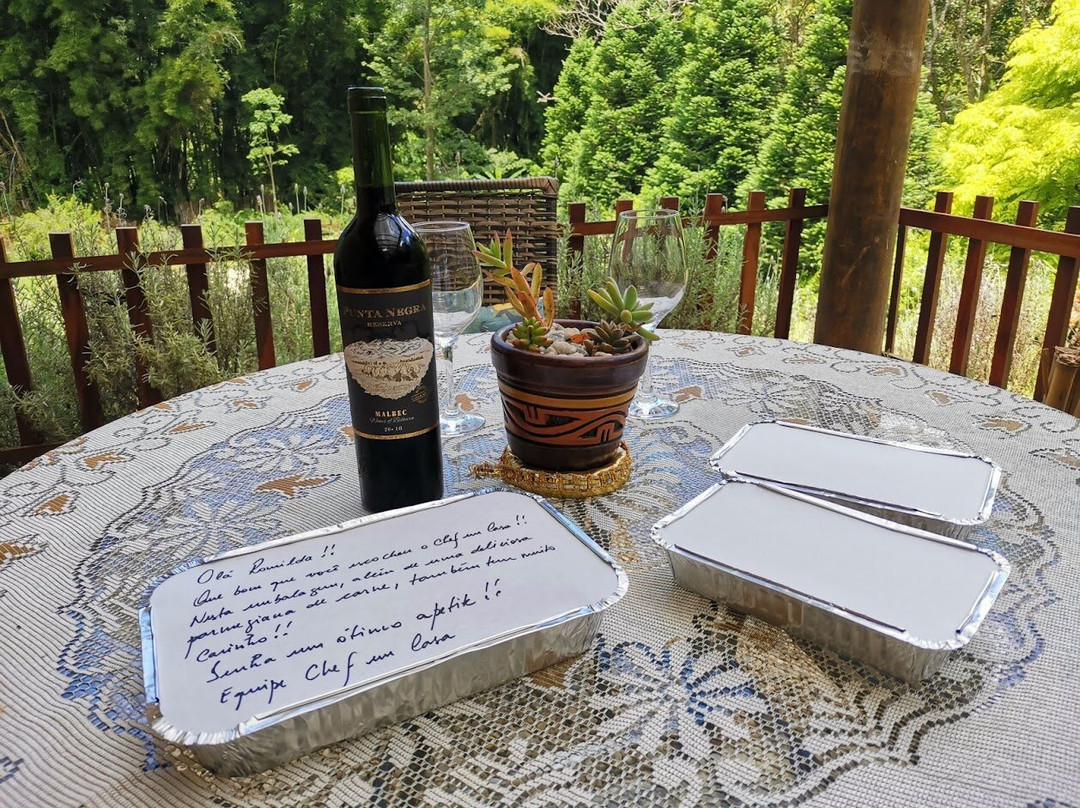 PUNTA NEGRA
RESERVA
MALBEC
Olá Romilda!!
Que bom que você escolheu o Chef em Casa!!
Nesta embalagem, além de uma deliciosa
parmegiana de carne, também tem muito
Carinho!!
Tenha um ótimo apetite!!
Equipe Chef em Casa